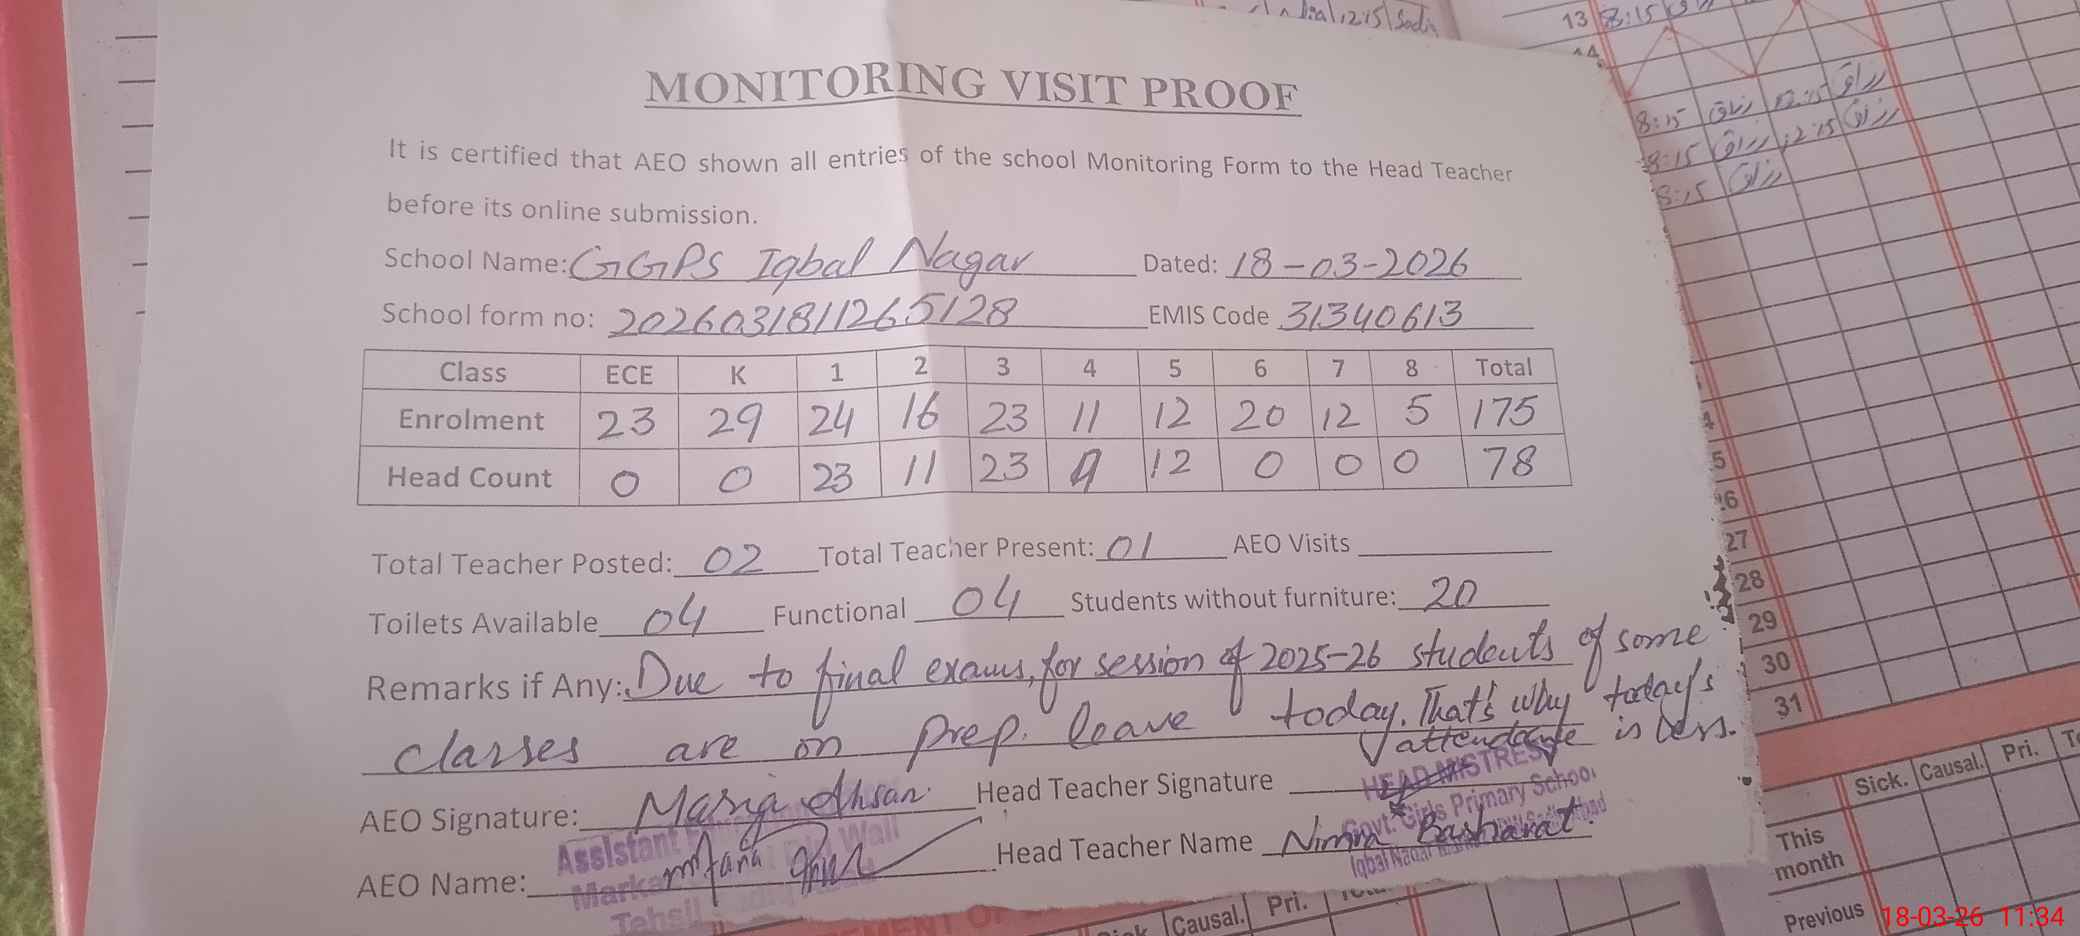 MONITORING VISIT PROOF
It is certified that AEO shown all entries of the school Monitoring Form to the Head Teacher
before its online submission.
School Name: GGPS Iqbal Nagar Dated: 18-03-2026
School form no: 2026031811265128 EMIS Code 31340613
Class ECE K 1 2 3 4 5 6 7 8 Total
Enrolment 23 29 24 16 23 11 12 20 12 5 175
Head Count 0 0 23 11 23 9 12 0 0 0 78
Total Teacher Posted: 02 Total Teacher Present: 01 AEO Visits
Toilets Available 04 Functional 04 Students without furniture: 20
Remarks if Any: Due to final exams, for session of 2025-26 students of some
classes are on prep. leave today. That's why today's
attendance is less.
AEO Signature: Ahsan Head Teacher Signature
HEAD MISTRESS
Govt. Girls Primary School
Iqbal Nagar
AEO Name: Head Teacher Name Nimra Basharat.
Assistant
Marka
Tehsil
13 8:15
14
8:15 12:15
8:15 12:15
8:15
26
27
28
29
30
31
Sick. Causal. Pri.
This
month
Previous
Causal. Pri.
18-03-26 11:34